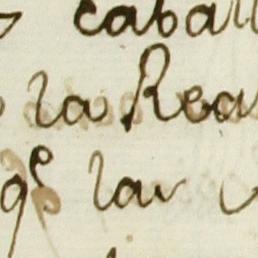 caball
la Rea
qe la